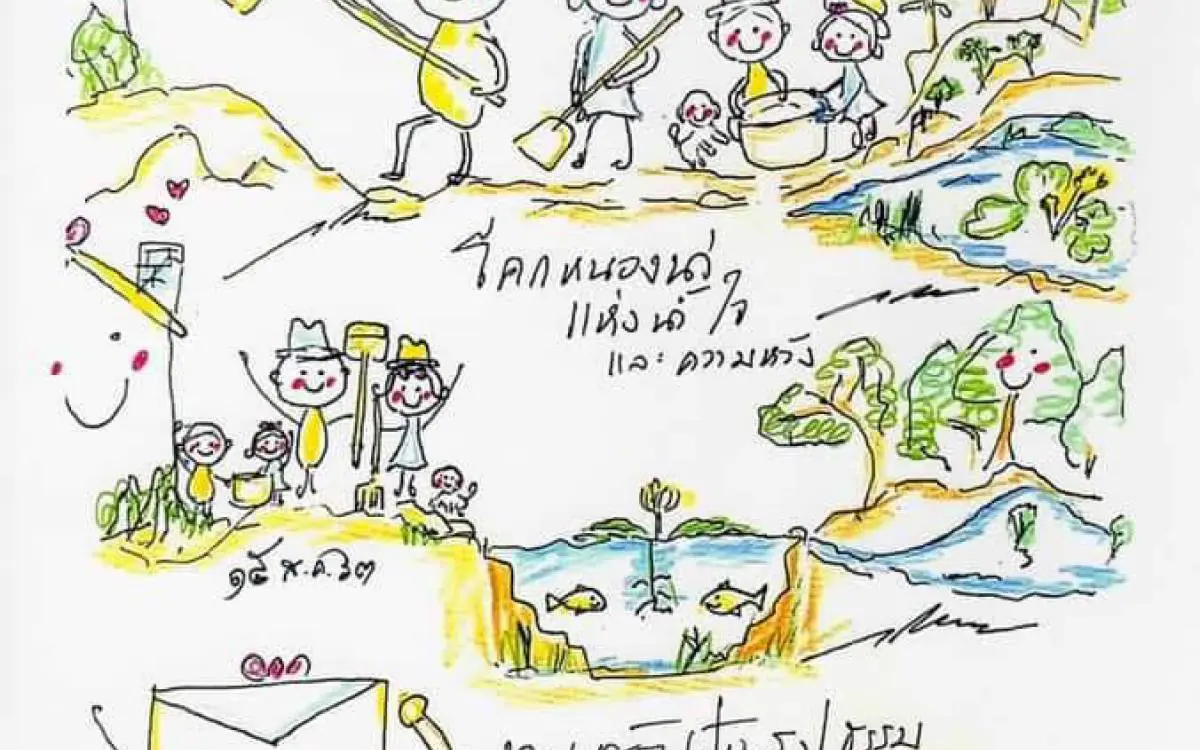 โคกหนองนา
แห่งน้ำใจ
และความหวัง
๑๕ ส.ค. ๖๓